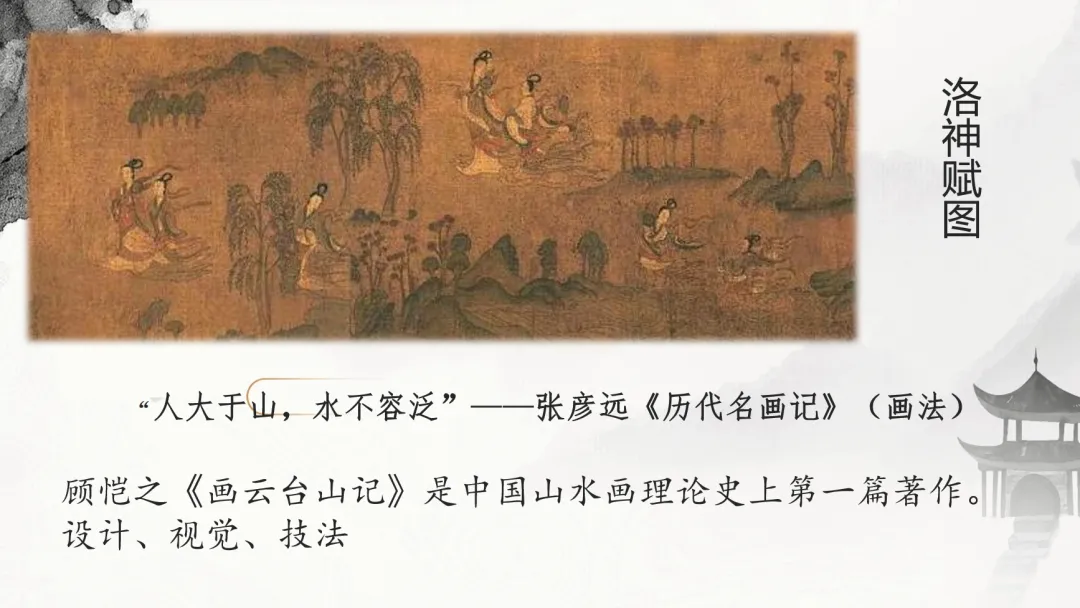 洛神赋图
“人大于山，水不容泛”——张彦远《历代名画记》（画法）
顾恺之《画云台山记》是中国山水画理论史上第一篇著作。
设计、视觉、技法